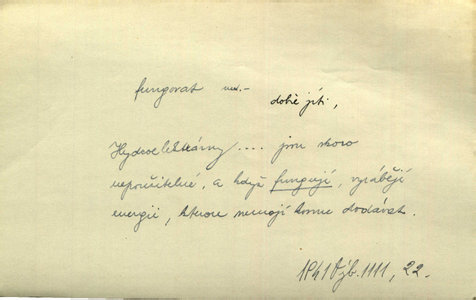 fungovat ned.-
dobře jíti,
Hydroelektrárny.... jsou skoro
nepoužitelné, a když fungují, vyrábějí
energii, kterou nemají komu dodávat.
1941 Výb. 1111, 22.